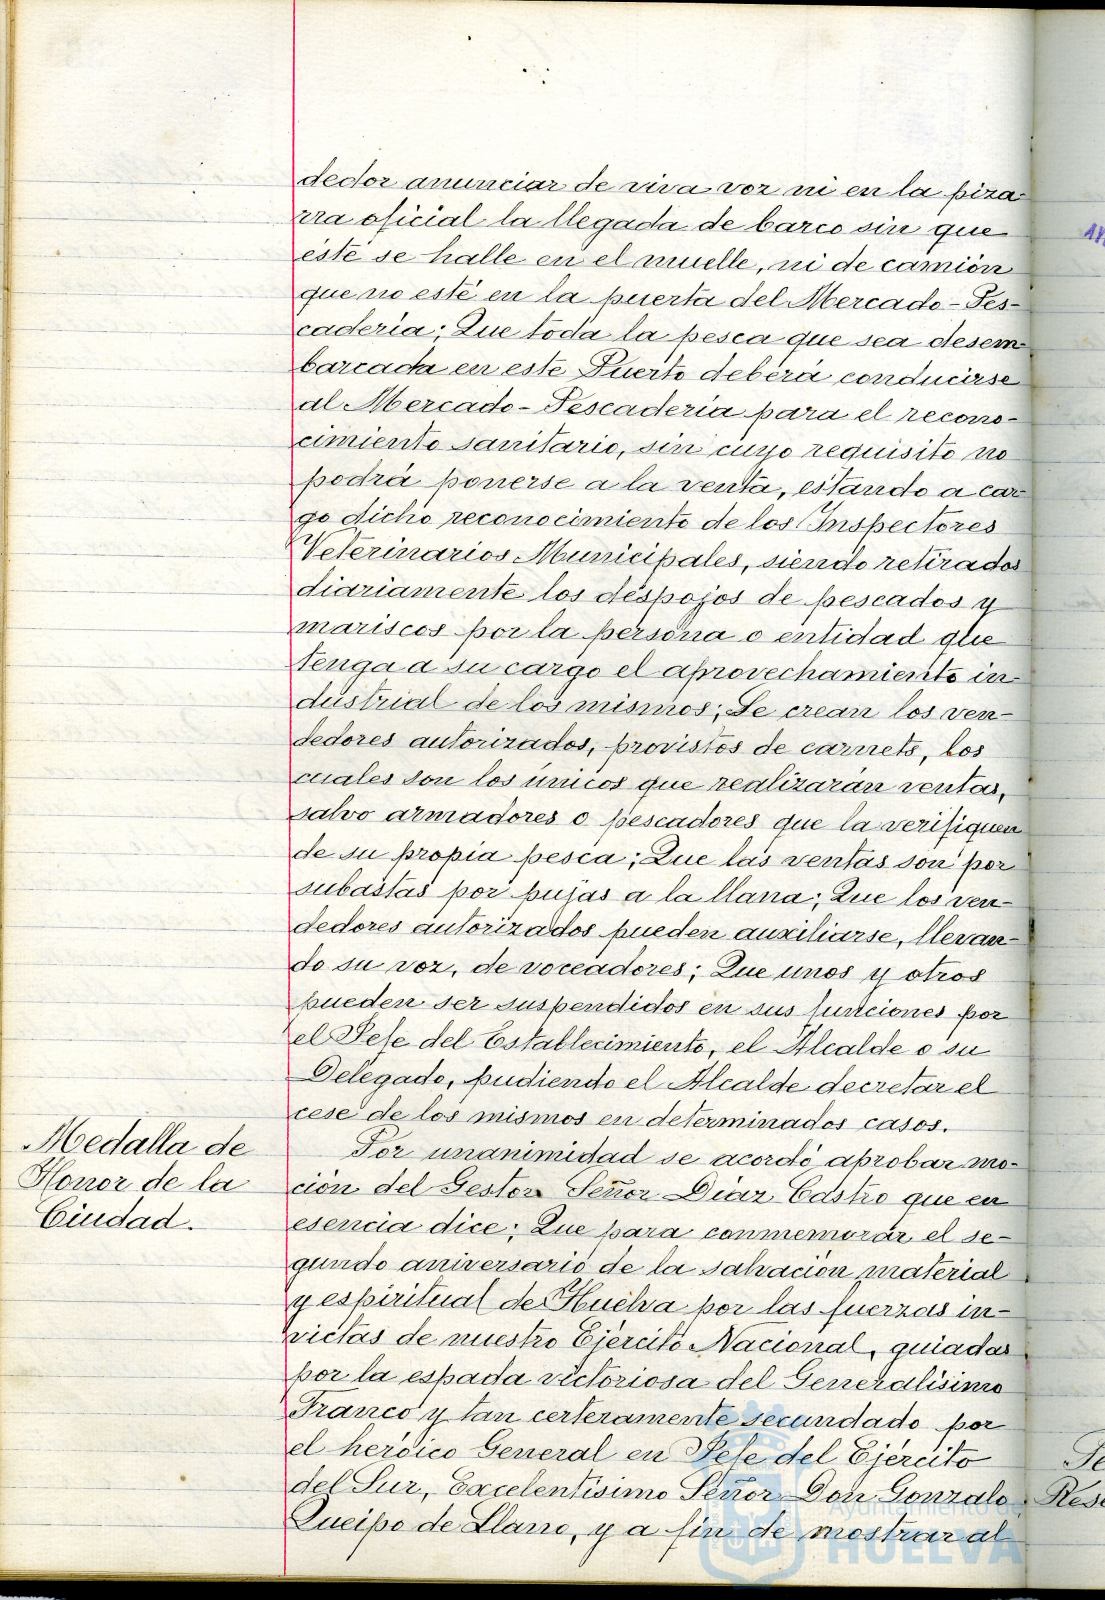 dedor anunciar de viva voz ni en la piza-
rra oficial la llegada de barco sin que
éste se halle en el muelle, ni de camión
que no esté en la puerta del Mercado-Pes-
cadería; Que toda la pesca que sea desem-
barcada en este Puerto deberá conducirse
al Mercado-Pescadería para el recono-
cimiento sanitario, sin cuyo requisito no
podrá ponerse a la venta, estando a car-
go dicho reconocimiento de los Inspectores
Veterinarios Municipales, siendo retirados
diariamente los despojos de pescados y
mariscos por la persona o entidad que
tenga a su cargo el aprovechamiento in-
dustrial de los mismos; Se crean los ven-
dedores autorizados, provistos de carnets, los
cuales son los únicos que realizarán ventas,
salvo armadores o pescadores que la verifiquen
de su propia pesca; Que las ventas son por
subastas por pujas a la llana; Que los ven-
dedores autorizados pueden auxiliarse, llevan-
do su voz, de voceadores; Que unos y otros
pueden ser suspendidos en sus funciones por
el Jefe del Establecimiento, el Alcalde o su
Delegado, pudiendo el Alcalde decretar el
cese de los mismos en determinados casos.
Medalla de
Honor de la
Ciudad.
Por unanimidad se acordó aprobar mo-
ción del Gestor Señor Díaz Castro que en
esencia dice: Que para conmemorar el se-
gundo aniversario de la salvación material
y espiritual de Huelva por las fuerzas in-
victas de nuestro Ejército Nacional, guiadas
por la espada victoriosa del Generalísimo
Franco y tan certeramente secundado por
el heróico General en Jefe del Ejército
del Sur, Excelentísimo Señor Don Gonzalo
Queipo de Llano, y a fin de mostrar al
Ayuntamiento de
HUELVA